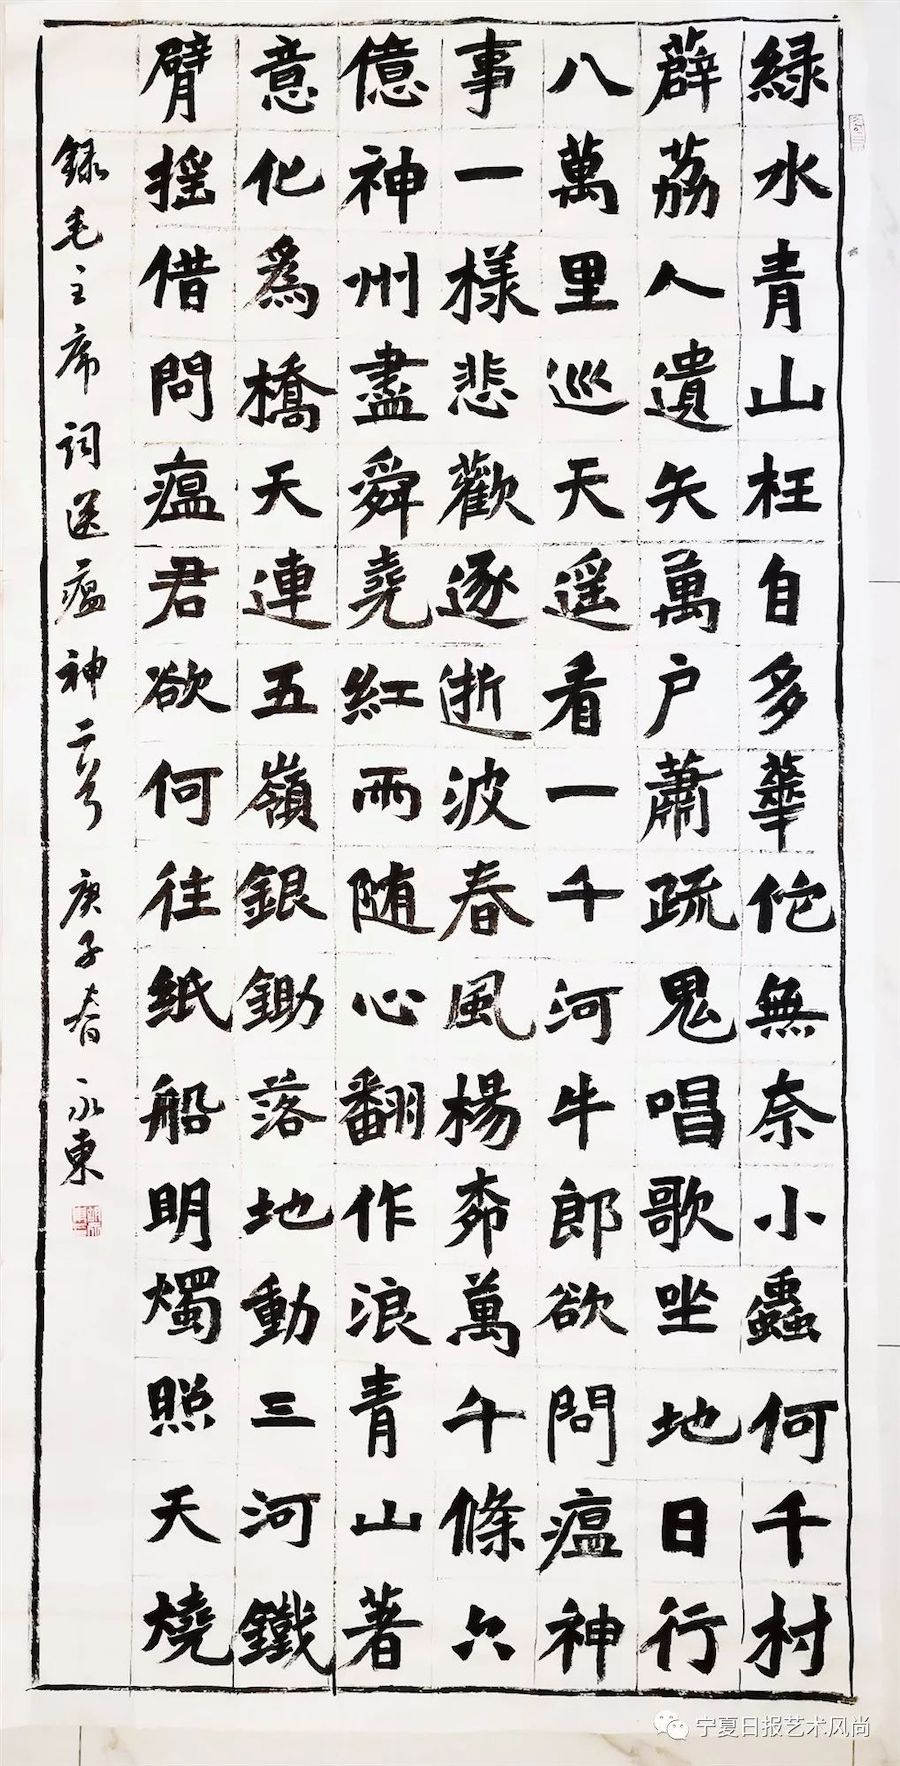 綠水青山枉自多華佗無奈小蟲何千村
薜荔人遺矢萬户蕭疏鬼唱歌坐地日行
八萬里巡天遥看一千河牛郎欲問瘟神
事一樣悲歡逐逝波春風楊柳萬千條六
億神州盡舜堯紅雨随心翻作浪青山著
意化為橋天連五嶺銀鋤落地動三河鐵
臂摇借問瘟君欲何往紙船明燭照天燒
録毛主席詞送瘟神二首 庚子春 永東
宁夏日报艺术风尚